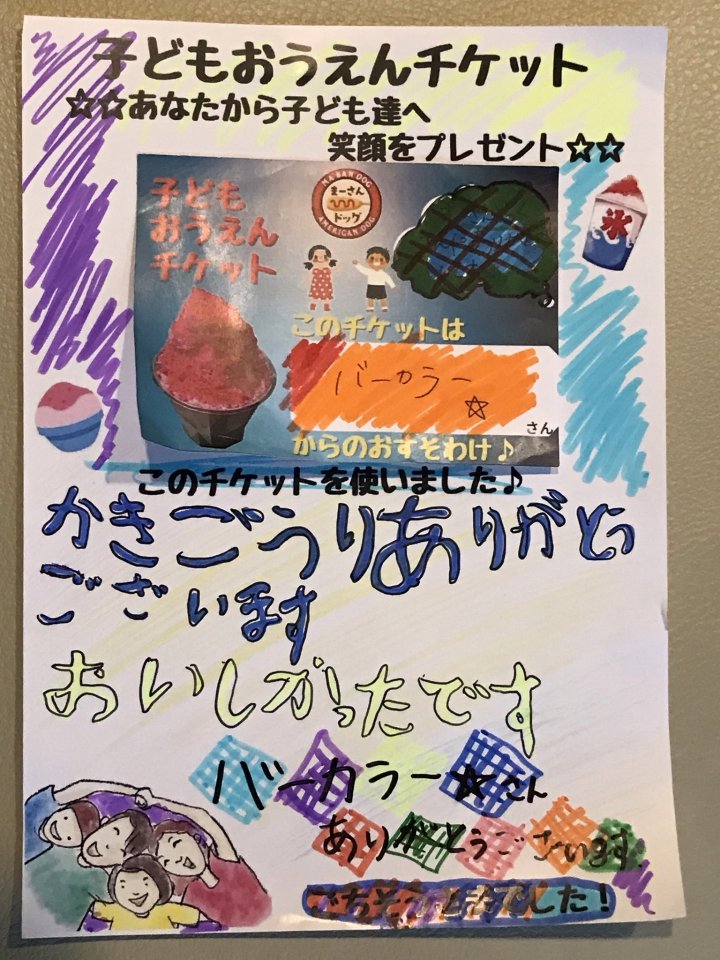 子どもおうえんチケット
☆☆あなたから子ども達へ
笑顔をプレゼント☆☆
子ども
おうえん
チケット
MA-SAN DOG
まーさん
ドッグ
AMERICAN DOG
氷
このチケットは
バーカラー
☆
さん
からのおすそわけ♪
このチケットを使いました♪
かきごうりありがとう
ございます
おいしかったです
バーカラー☆さん
ありがとうございます
ごちそうさまでした！